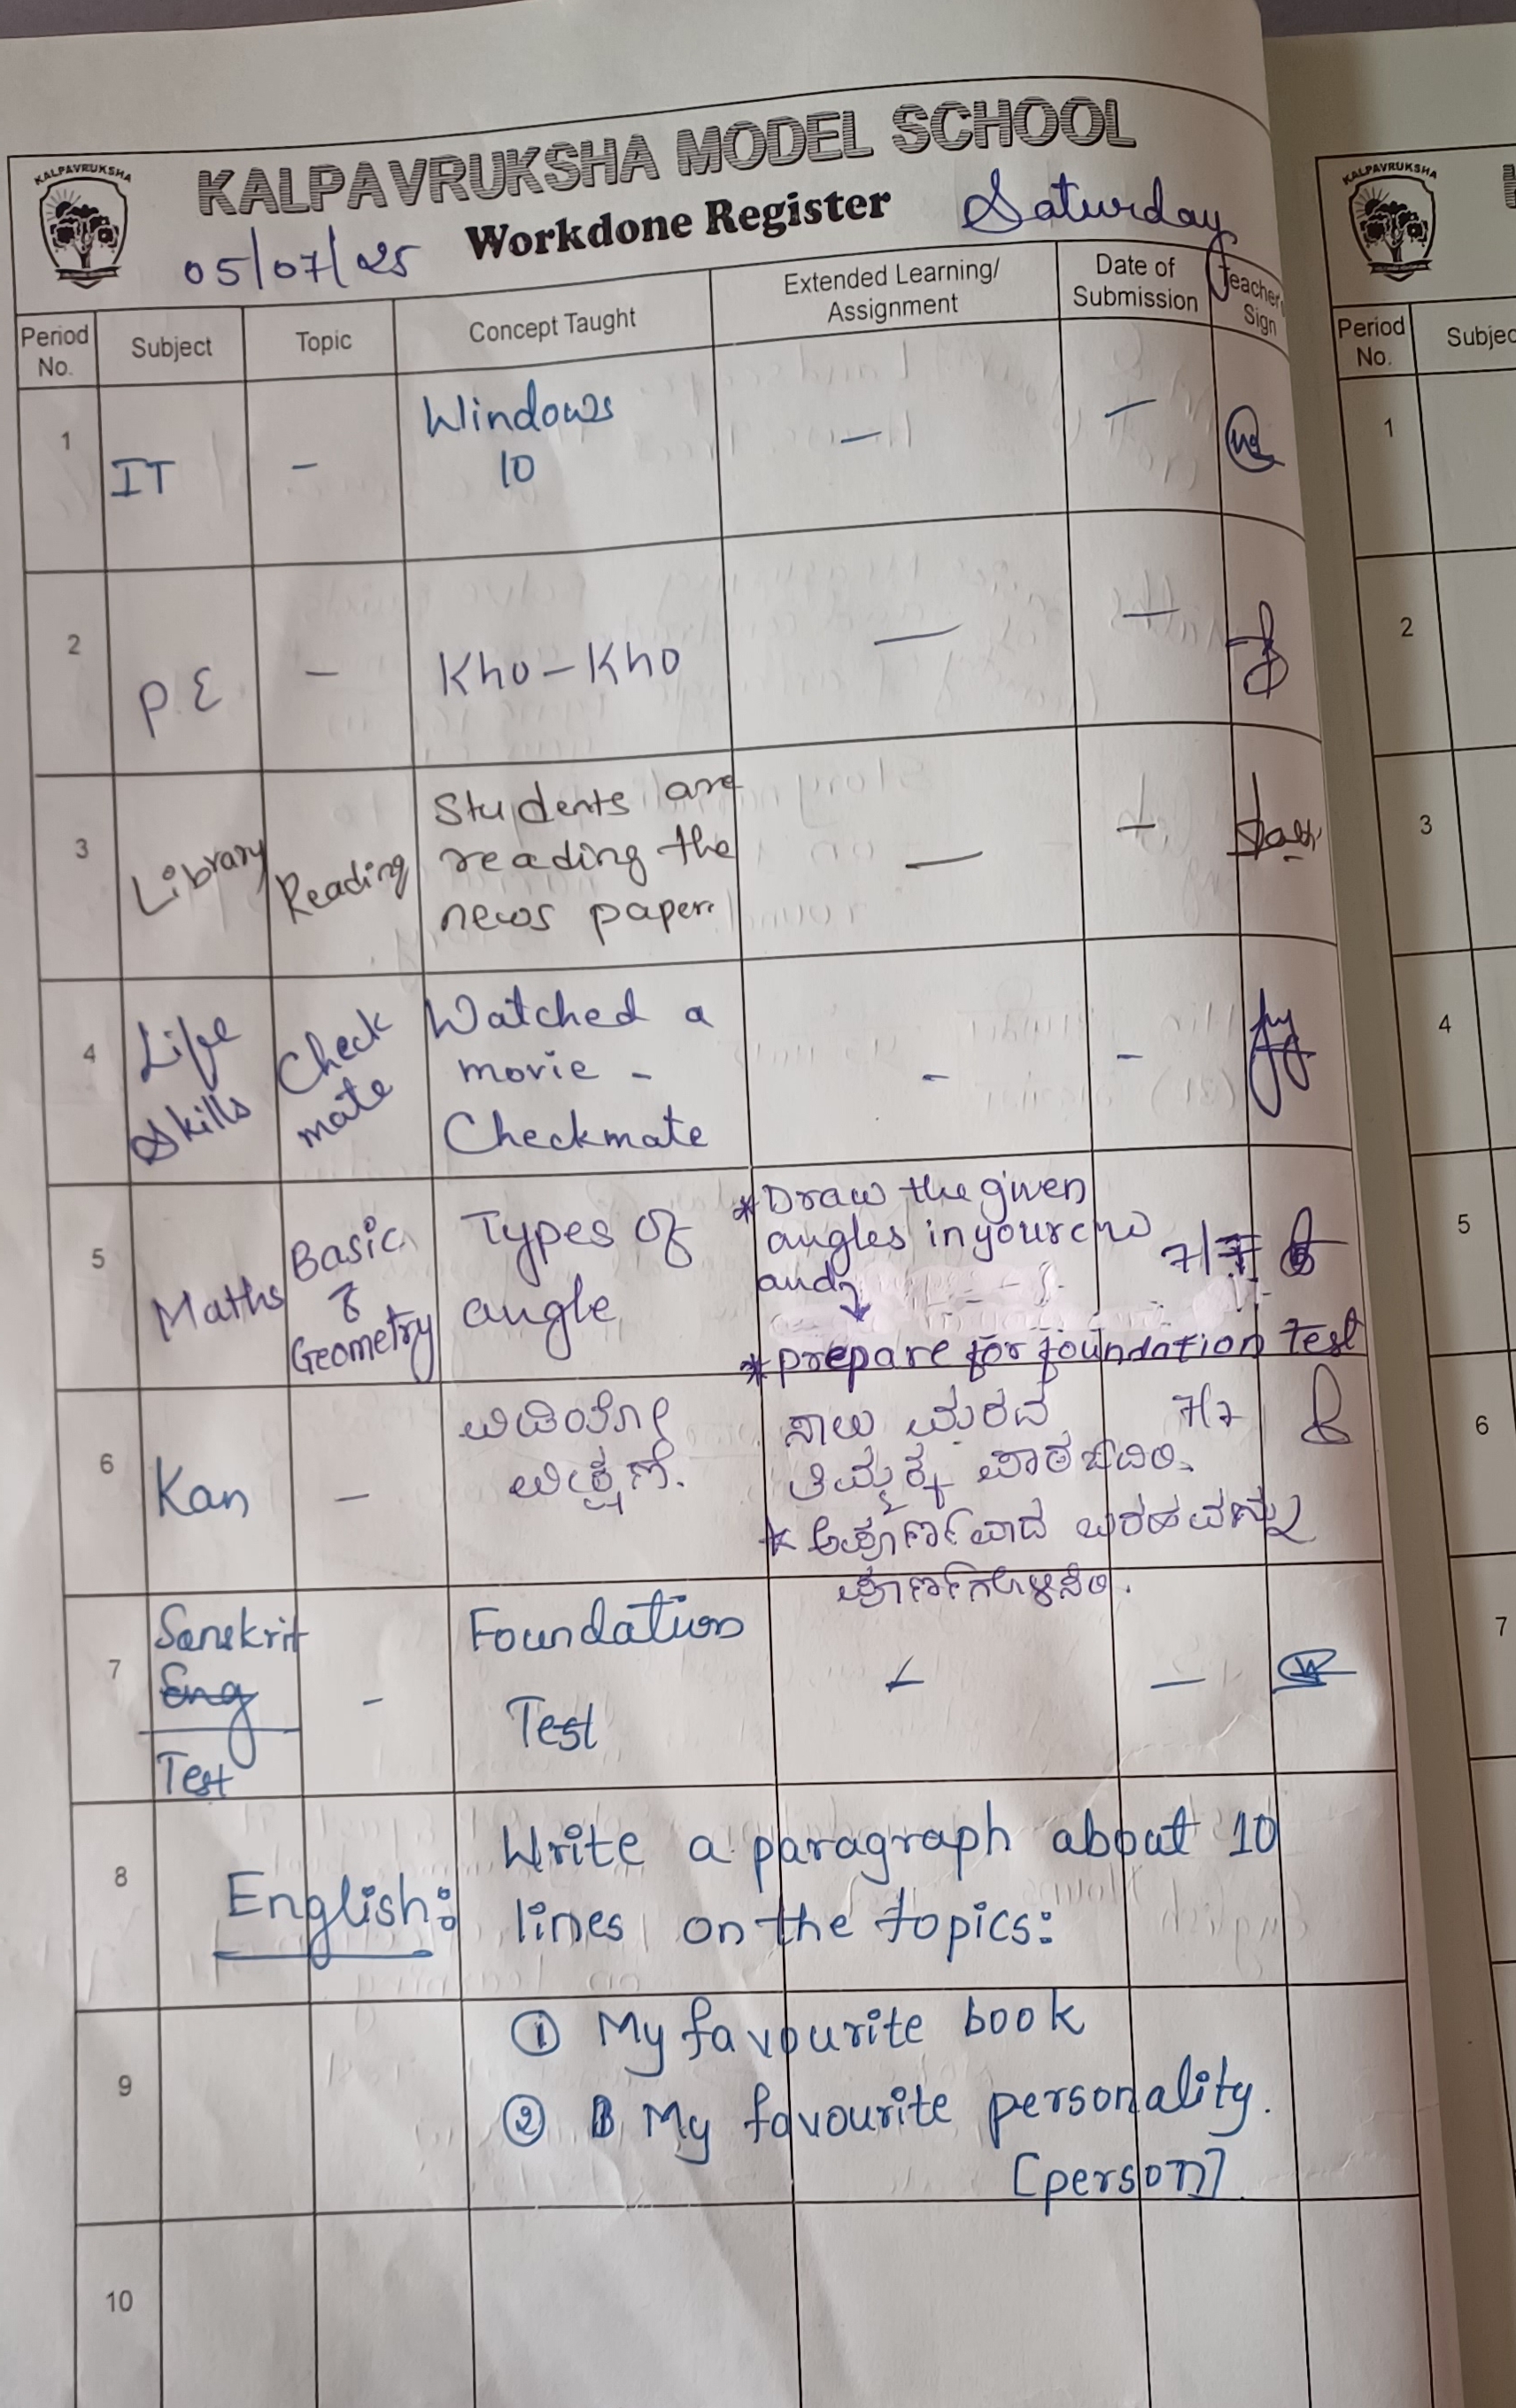 KALPAVRUKSHA
KALPAVRUKSHA MODEL SCHOOL
05/07/25 Workdone Register Saturday
Period No. Subject Topic Concept Taught Extended Learning/ Assignment Date of Submission Teacher Sign
1 IT - Windows 10 - -
2 P.E - Kho-Kho - -
3 Library Reading Students are
reading the
news paper. - -
4 Life Skills Check mate Watched a
movie -
Checkmate - -
5 Maths Basic Geometry Types of
angle
*Draw the given
angles in your cw 7/7
and
*prepare for foundation test
6 Kan - ವಿಡಿಯೋ
ವೀಕ್ಷಣೆ.
ಸಾಲು ಮರದ 7/7
ತಿಮ್ಮಕ್ಕ
* ಅಪೂರ್ಣವಾದ ಬರಹವನ್ನು
ಪೂರ್ಣಗೊಳಿಸಿರಿ.
7 Sanskrit
Eng
Test - Foundation
Test - -
8 English: Write a paragraph about 10
lines on the topics:
① My favourite book
9 ② My favourite personality.
[person]
10
KALPAVRUKSHA
Period No. Subjec
1
2
3
4
5
6
7